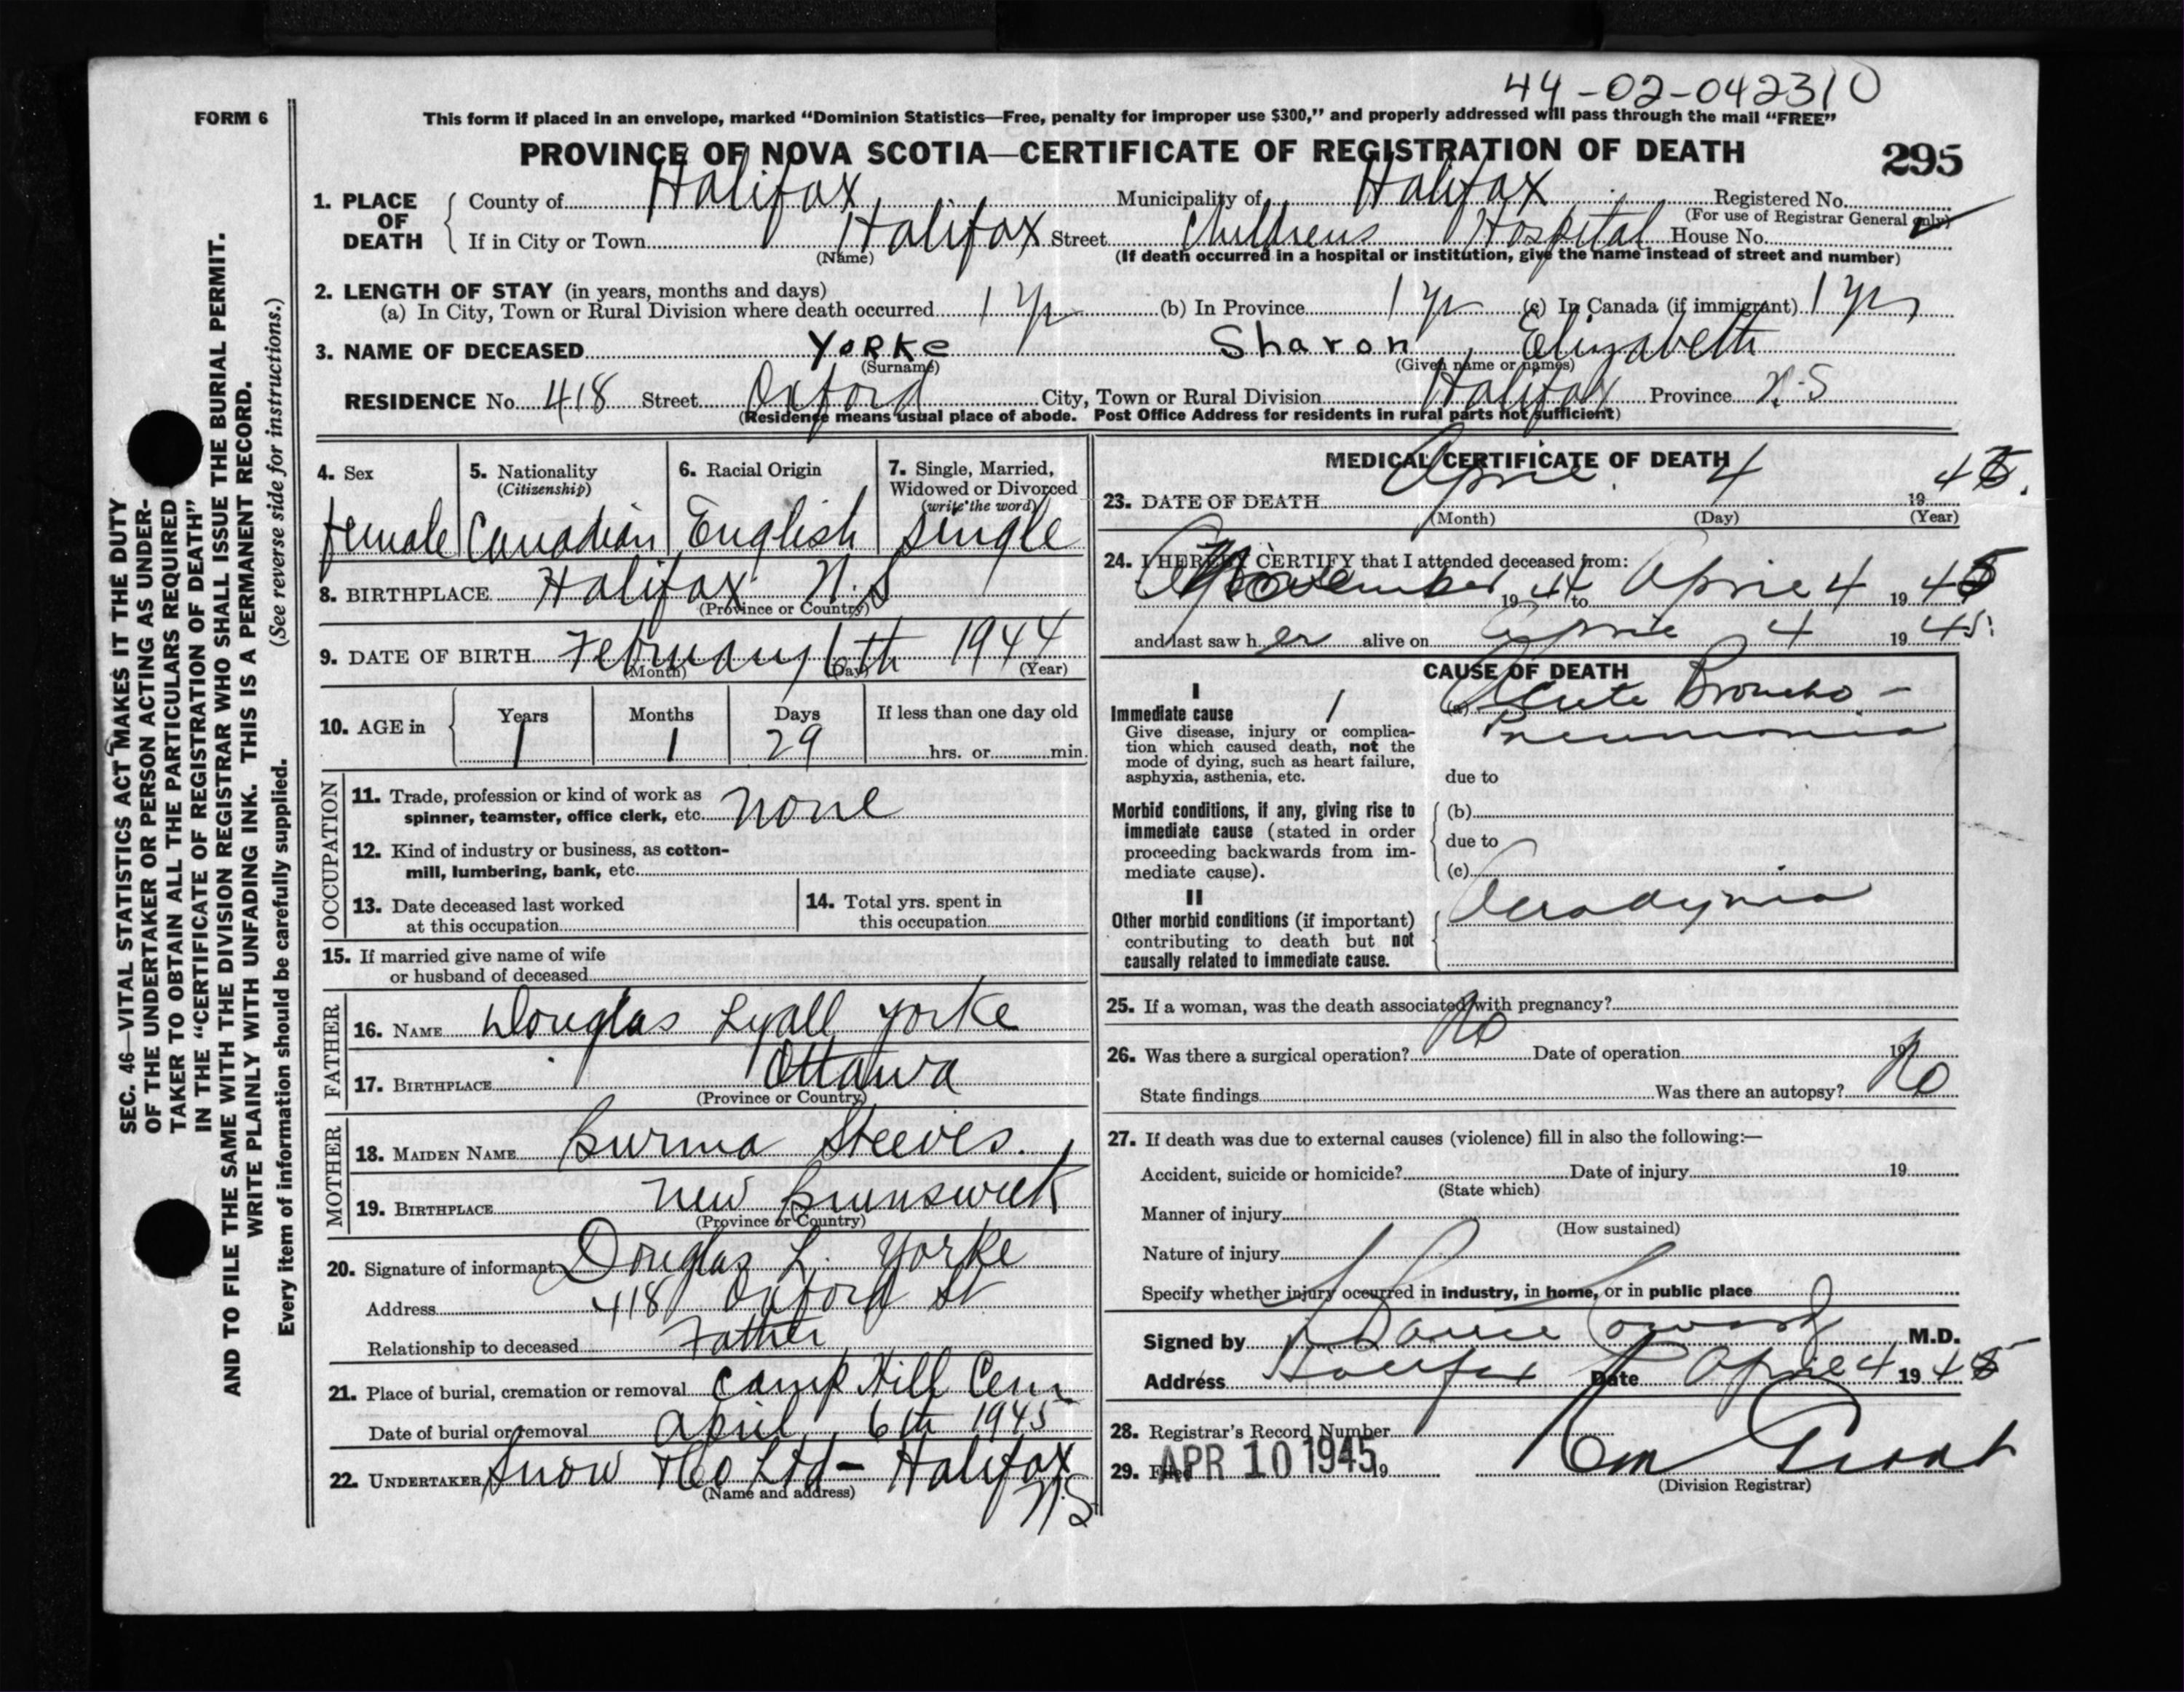 44-02-042310
FORM 6
This form if placed in an envelope, marked "Dominion Statistics—Free, penalty for improper use $300," and properly addressed will pass through the mail "FREE"
PROVINCE OF NOVA SCOTIA—CERTIFICATE OF REGISTRATION OF DEATH 295
1. PLACE OF DEATH
County of Halifax Municipality of Halifax Registered No.
(For use of Registrar General only)
If in City or Town Halifax Street Childrens Hospital House No.
(Name) (If death occurred in a hospital or institution, give the name instead of street and number)
2. LENGTH OF STAY (in years, months and days)
(a) In City, Town or Rural Division where death occurred 1 yr (b) In Province 1 yr (c) In Canada (if immigrant) 1 yr
3. NAME OF DECEASED Yorke Sharon Elizabeth
(Surname) (Given name or names)
RESIDENCE No. 418 Street Oxford City, Town or Rural Division Halifax Province N.S
(Residence means usual place of abode. Post Office Address for residents in rural parts not sufficient)
4. Sex
female
5. Nationality
(Citizenship)
Canadian
6. Racial Origin
English
7. Single, Married,
Widowed or Divorced
(write the word)
single
8. BIRTHPLACE Halifax N.S
(Province or Country)
9. DATE OF BIRTH February 6th 1944
(Month) (Day) (Year)
10. AGE in
Years Months Days If less than one day old
1 1 29 hrs. or min.
OCCUPATION
11. Trade, profession or kind of work as
spinner, teamster, office clerk, etc. none
12. Kind of industry or business, as cotton-
mill, lumbering, bank, etc.
13. Date deceased last worked
at this occupation
14. Total yrs. spent in
this occupation
15. If married give name of wife
or husband of deceased
FATHER
16. NAME Douglas Lyall Yorke
17. BIRTHPLACE Ottawa
(Province or Country)
MOTHER
18. MAIDEN NAME Burma Steeves.
19. BIRTHPLACE New Brunswick
(Province or Country)
20. Signature of informant Douglas L. Yorke
Address 418 Oxford St
Relationship to deceased Father
21. Place of burial, cremation or removal Camp Hill Cem
Date of burial or removal April 6th 1945
22. UNDERTAKER Snow & Co Ltd - Halifax
(Name and address) N.S
MEDICAL CERTIFICATE OF DEATH
23. DATE OF DEATH April 4 1945.
(Month) (Day) (Year)
24. I HEREBY CERTIFY that I attended deceased from:
November 1944 to April 4 1945
and last saw her alive on April 4 1945.
CAUSE OF DEATH
I
Immediate cause
Give disease, injury or complica-
tion which caused death, not the
mode of dying, such as heart failure,
asphyxia, asthenia, etc.
1
(a) Acute Broncho-
Pneumonia
due to
Morbid conditions, if any, giving rise to
immediate cause (stated in order
proceeding backwards from im-
mediate cause).
(b)
due to
(c)
II
Other morbid conditions (if important)
contributing to death but not
causally related to immediate cause.
Acrodynia
25. If a woman, was the death associated with pregnancy?
26. Was there a surgical operation? No Date of operation 19
State findings Was there an autopsy? No
27. If death was due to external causes (violence) fill in also the following:—
Accident, suicide or homicide? Date of injury 19
(State which)
Manner of injury
(How sustained)
Nature of injury
Specify whether injury occurred in industry, in home, or in public place
Signed by M.D.
Address Halifax Date April 4 1945
28. Registrar's Record Number
29. Filed APR 10 1945 19
Grant
(Division Registrar)
SEC. 46—VITAL STATISTICS ACT MAKES IT THE DUTY
OF THE UNDERTAKER OR PERSON ACTING AS UNDER-
TAKER TO OBTAIN ALL THE PARTICULARS REQUIRED
IN THE "CERTIFICATE OF REGISTRATION OF DEATH"
AND TO FILE THE SAME WITH THE DIVISION REGISTRAR WHO SHALL ISSUE THE BURIAL PERMIT.
WRITE PLAINLY WITH UNFADING INK. THIS IS A PERMANENT RECORD.
Every item of information should be carefully supplied. (See reverse side for instructions.)